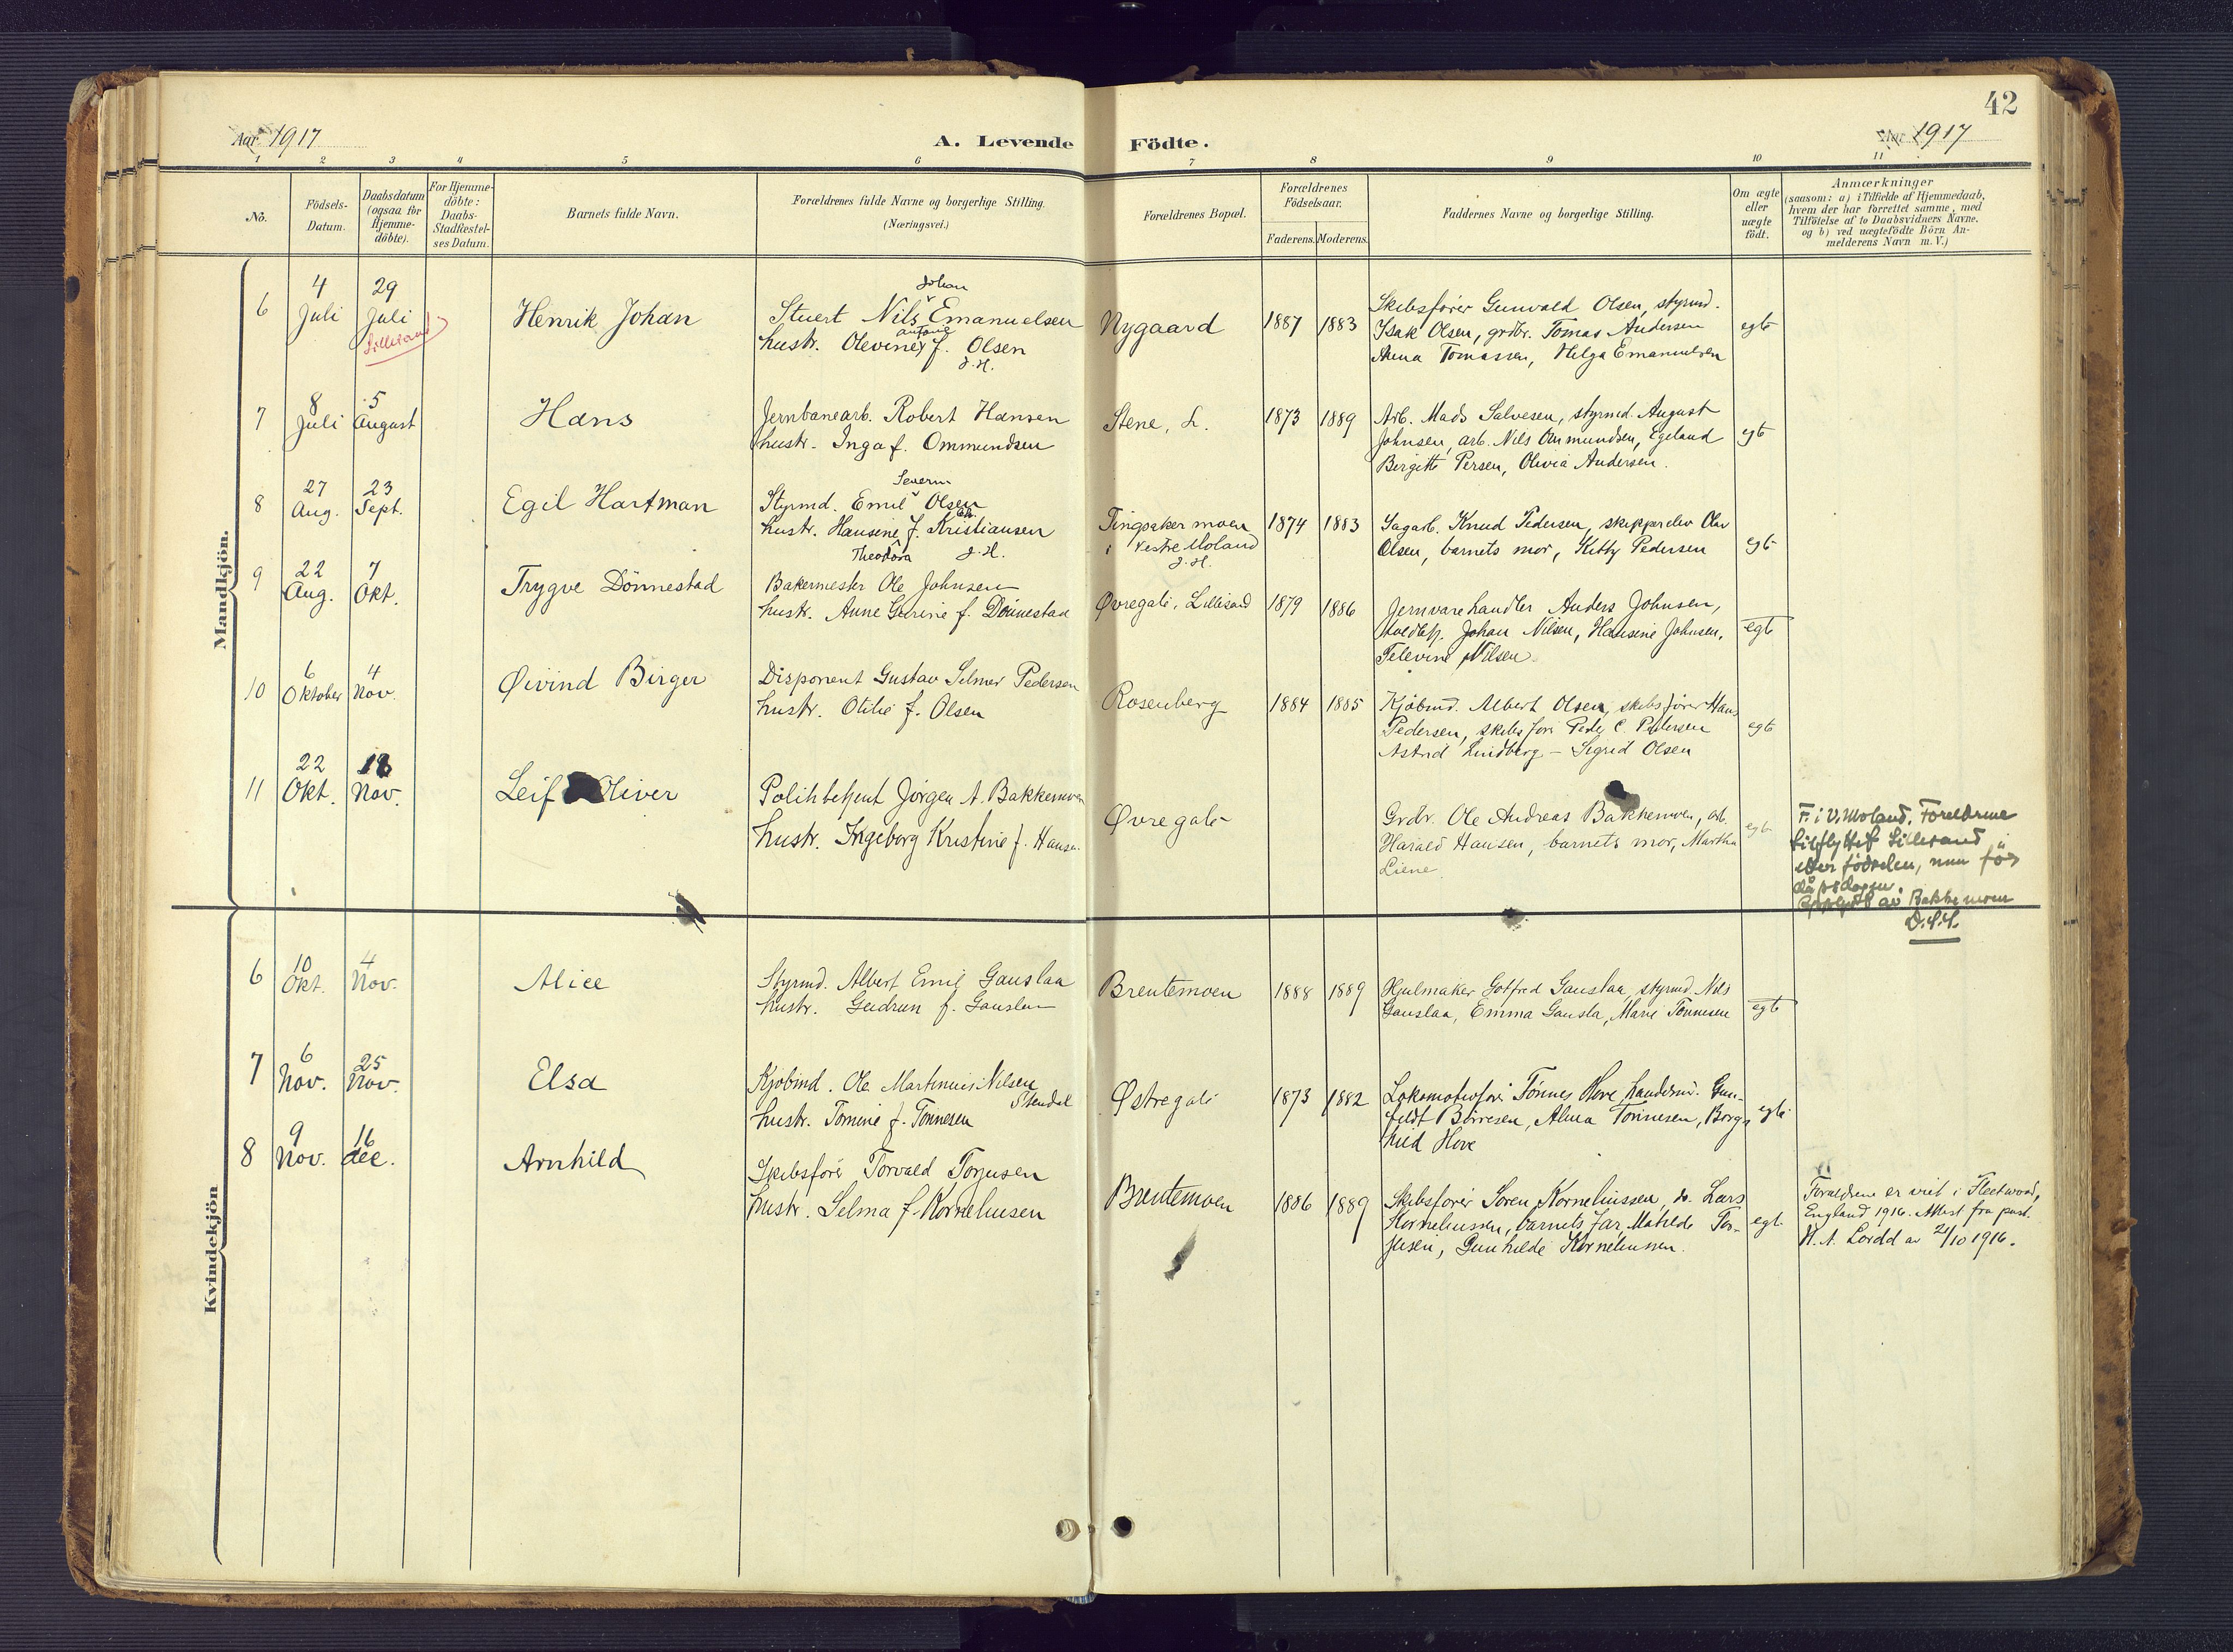 42
Aar 1917
A. Levende
Födte.
Aar 1917
1 2 3 4 5 6 7 8 9 10 11
No.
Födsels-
Datum.
Daabsdatum
(ogsaa för
Hjemme-
döbte).
For Hjemme-
döbte:
Daabs-
Stadfæstel-
ses Datum.
Barnets fulde Navn.
Forældrenes fulde Navne og borgerlige Stilling.
(Næringsvei.)
Forældrenes Bopæl.
Forældrenes
Födselsaar.
Faderens. Moderens.
Faddernes Navne og borgerlige Stilling.
Om ægte
eller
uægte
födt.
Anmærkninger
(saasom: a) i Tilfælde af Hjemmedaab,
hvem der har forrettet samme, med
Tilföielse af to Daabsvidners Navne.
og b) ved uægtefödte Börn An-
melderens Navn m. V.)
Mandkjön.
6
4
Juli
29
Juli
Lillesand
Henrik Johan
Johan
Stuert Nils Emanuelsen
Antonie
hustr. Olevine f. Olsen
J. H.
Nygaard
1887 1883
Skibsfører Gunvald Olsen, styrmd.
Isak Olsen, grdbr. Tomas Andersen
Anna Tomassen, Helga Emanuelsen
egte
7
8
Juli
5
August
Hans
Jernbanearb. Robert Hansen
hustr. Inga f. Ommundsen
Stene, L.
1873 1889
Arb. Mads Salvesen, styrmd. August
Johnsen, arb. Nils Ommundsen, Egeland
Birgitte Persen, Olivia Andersen.
egte
8
27
Aug.
23
Sept.
Egil Hartman
Severin
Styrmd. Emil Olsen
hustr. Hansine f. Kristiansen
Theodora J. H.
Tingsaker moen
i Vestre Moland
J. H.
1874 1883
Sagarb. Knud Pedersen, skipperelev Olav
Olsen, barnets mor, Kitty Pedersen
egte
9
22
Aug.
7
Okt.
Trygve Dönnestad
Bakermester Ole Johnsen
hustr. Anne Gurine f. Dönnestad
Øvregate, Lillesand
1879 1886
Jernvarehandler Anders Johnsen,
Johan Nilsen, Hansine Johnsen,
Televine Nilsen
egte
10
6
Oktober
4
Nov.
Øivind Birger
Disponent Gustav Selmer Pedersen
hustr. Otilie f. Olsen
Rosenberg
1884 1885
Kjöbmd. Albert Olsen, skibsfører Hans
Pedersen, skibsfører Peder C. Pedersen
Astrid Lindberg - Sigrid Olsen
egte
11
22
Okt.
18
Nov.
Leif Oliver
Politibetjent Jörgen A. Bakkemoen
hustr. Ingeborg Kristine f. Hansen
Øvregate
Grdbr. Ole Andreas Bakkemoen, arb.
Harald Hansen, barnets mor, Martha
Liene
egte
F. i V. Moland. Foreldrene
tilflyttet Lillesand
etter fødselen, men før
dåpsdagen.
Oppgitt av Bakkemoen
Kvindekjön
6
10
Okt.
4
Nov.
Alice
Styrmd. Albert Emil Gauslaa
hustr. Gudrun f. Gauslaa
Brentemoen
1888 1889
Hjulmaker Gotfred Gauslaa, styrmd. Nils
Gauslaa, Emma Gausla, Marie Tönnesen
egte
7
6
Nov.
25
Nov.
Elsa
Kjöbmd. Ole Martinius Nilsen
Stendal
hustr. Tomine f. Tönnesen
Østregate
1873 1882
Lokomotivfører Tönnes Hove, handelsmd. Gun-
feldt Börresen, Alma Tönnesen, Borg-
hild Hove
egte
8
9
Nov.
16
dec.
Arnhild
Skibsfører Torvald Torjusen
hustr. Selma f. Korneliusen
Brentemoen
1886 1889
Skibsfører Sören Korneliussen, do. Lars
Korneliussen, barnets far, Matilde Tor-
jusen, Gunhilde Korneliussen.
egte
Forældrene er viet i Fleetwood,
England 1916. Attest fra past.
H. A. Lordd av 2/10 1916.